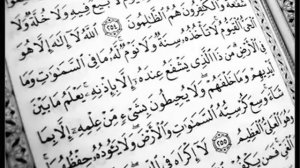 بيع فيه ولا خلة ولا
شفعة والكفرون هم الظلمون ٢٥٤ الله لا إله إلا هو
الحى القيوم لا تأخذه سنة ولا نوم له ما فى السموت وما
فى الأرض من ذا الذى يشفع عنده إلا بإذنه يعلم ما بين
أيديهم وما خلفهم ولا يحيطون بشىء من علمه إلا بما
شاء وسع كرسيه السموت والأرض ولا يئوده حفظهما
وهو العلى العظيم ٢٥٥ لا إكراه فى